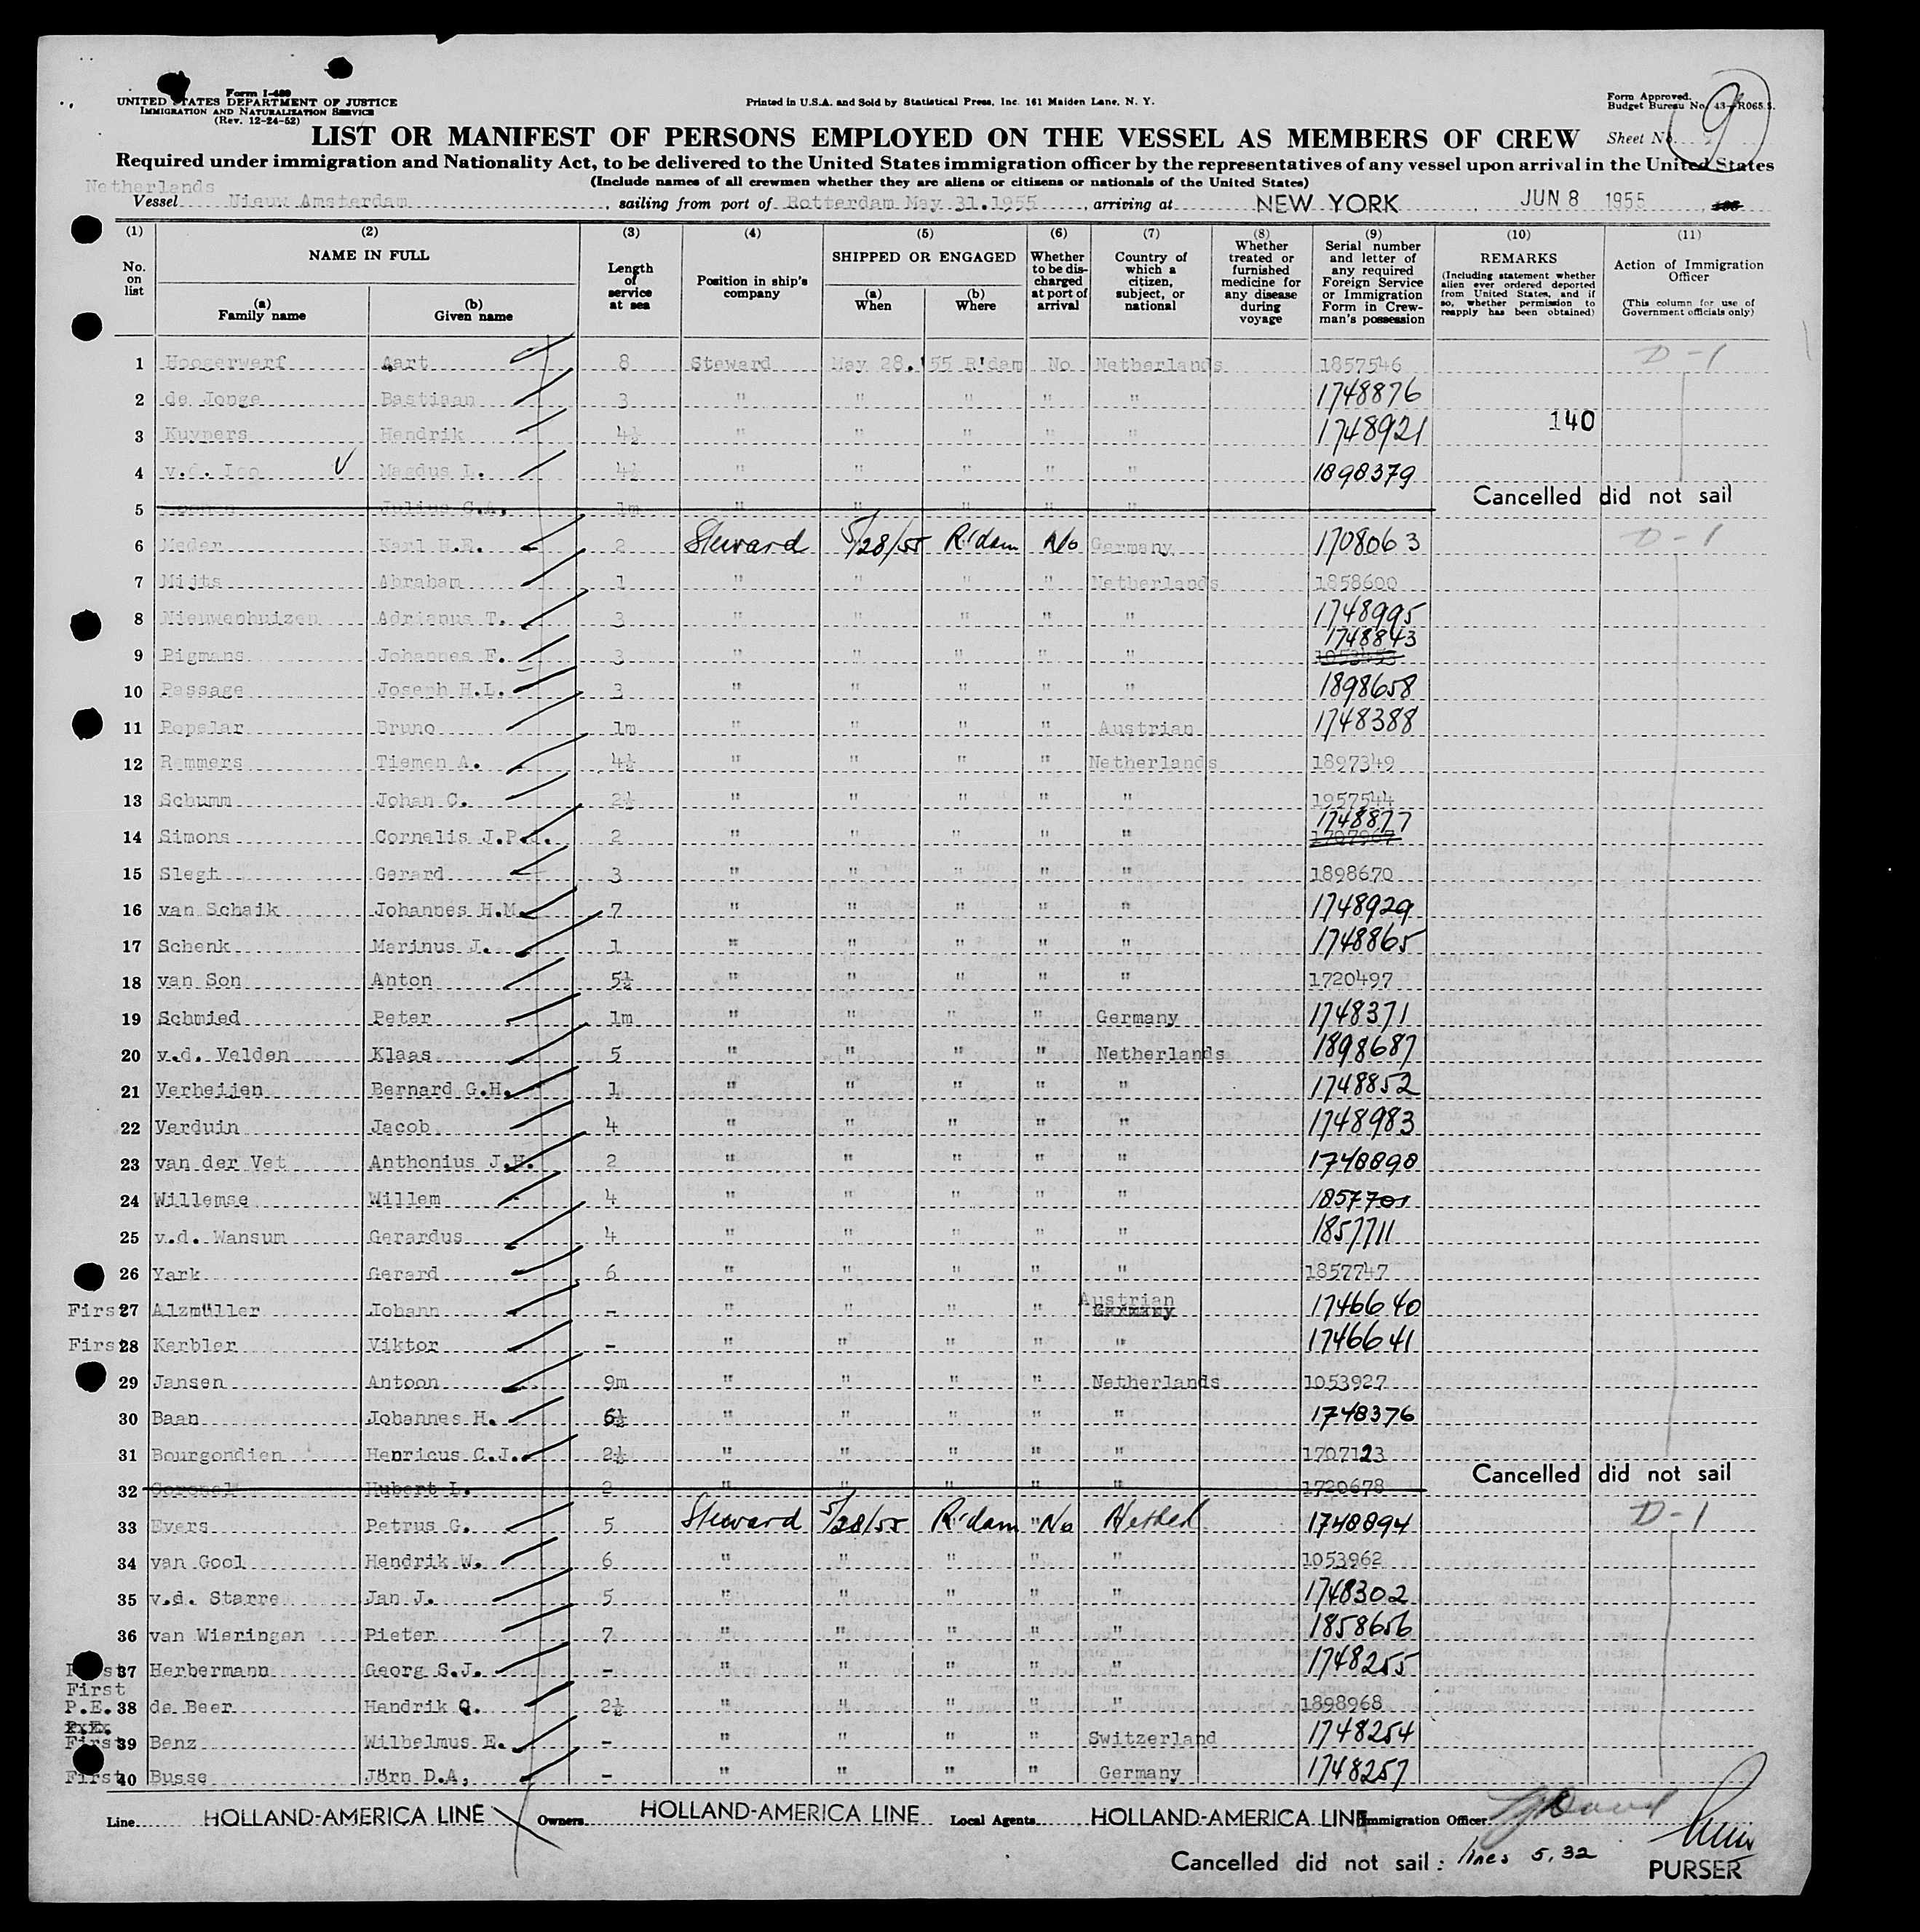 Form I-489
UNITED STATES DEPARTMENT OF JUSTICE
IMMIGRATION AND NATURALIZATION SERVICE
(Rev. 12-24-52)
Printed in U.S.A. and Sold by Statistical Press, Inc. 161 Maiden Lane, N. Y.
Form Approved.
Budget Bureau No. 43-R065.5.
LIST OR MANIFEST OF PERSONS EMPLOYED ON THE VESSEL AS MEMBERS OF CREW
Sheet No. 9
Required under immigration and Nationality Act, to be delivered to the United States immigration officer by the representatives of any vessel upon arrival in the United States
(Include names of all crewmen whether they are aliens or citizens or nationals of the United States)
Netherlands
Vessel Nieuw Amsterdam, sailing from port of Rotterdam May 31.1955, arriving at NEW YORK JUN 8 1955
(1) No. on list
(2) NAME IN FULL (a) Family name (b) Given name
(3) Length of service at sea
(4) Position in ship's company
(5) SHIPPED OR ENGAGED (a) When (b) Where
(6) Whether to be discharged at port of arrival
(7) Country of which a citizen, subject, or national
(8) Whether treated or furnished medicine for any disease during voyage
(9) Serial number and letter of any required Foreign Service or Immigration Form in Crewman's possession
(10) REMARKS (Including statement whether alien ever ordered deported from United States, and if so, whether permission to reapply has been obtained)
(11) Action of Immigration Officer (This column for use of Government officials only)
1 Hoogerwerf Aart 8 Steward May 28.'55 R'dam No Netherlands 1857546 D-1
2 de Jonge Bastiaan 3 " " " " " 1748876
3 Kuypers Hendrik 4½ " " " " " 1748921 140
4 v.d. Magdus L. 4½ " " " " " 1898379
5 Julius C.A. 1m " " " " " Cancelled did not sail
6 Meder Karl H.E. 2 Steward 5/28/55 R'dam No Germany 1708063 D-1
7 Mijts Abraham 1 " " " " Netherlands 1858600
8 Nieuwenhuizen Adrianus T. 3 " " " " " 1748995
9 Pigmans Johannes F. 3 " " " " " 1748843 1053453
10 Passage Joseph H.L. 3 " " " " " 1898658
11 Popelar Bruno 1m " " " " Austrian 1748388
12 Remmers Tiemen A. 4½ " " " " Netherlands 1897349
13 Schumm Johan C. 2½ " " " " " 1957544
14 Simons Cornelis J.P.J. 2 " " " " " 1748877 1707967
15 Slegt Gerard 3 " " " " " 1898670
16 van Schaik Johannes H.M. 7 " " " " " 1748929
17 Schenk Marinus J. 1 " " " " " 1748865
18 van Son Anton 5½ " " " " " 1720497
19 Schmied Peter 1m " " " " Germany 1748371
20 v.d. Velden Klaas 5 " " " " Netherlands 1898687
21 Verheijen Bernard G.H. 1 " " " " " 1748852
22 Verduin Jacob 4 " " " " " 1748983
23 van der Vet Anthonius J.H. 2 " " " " " 1748898
24 Willemse Willem 4 " " " " " 1857701
25 v.d. Wansum Gerardus 4 " " " " " 1857711
26 Yark Gerard 6 " " " " " 1857747
First 27 Alzmüller Johann - " " " " Austrian Germany 1746640
First 28 Kerbler Viktor - " " " " " 1746641
29 Jansen Antoon 9m " " " " Netherlands 1053927
30 Baan Johannes H. 6½ " " " " " 1748376
31 Bourgondien Henricus C.J. 2½ " " " " " 1707123
32 Coronel Hubert L. 2 " " " " " 1720678 Cancelled did not sail
33 Evers Petrus G. 5 Steward 5/28/55 R'dam "No Netherl 1748894 D-1
34 van Gool Hendrik W. 6 " " " " " 1053962
35 v.d. Starre Jan J. 5 " " " " " 1748302
36 van Wieringen Pieter 7 " " " " " 1858656
First 37 Herbermann Georg S.J. - " " " " " 1748255
First
P.E. 38 de Beer Hendrik C. 2½ " " " " " 1898968
P.E.
First 39 Benz Wilhelmus E. - " " " " Switzerland 1748254
First 40 Busse Jörn D.A. - " " " " Germany 1748257
Line HOLLAND-AMERICA LINE Owners HOLLAND-AMERICA LINE Local Agents HOLLAND-AMERICA LINE Immigration Officer
Cancelled did not sail: lines 5, 32
PURSER